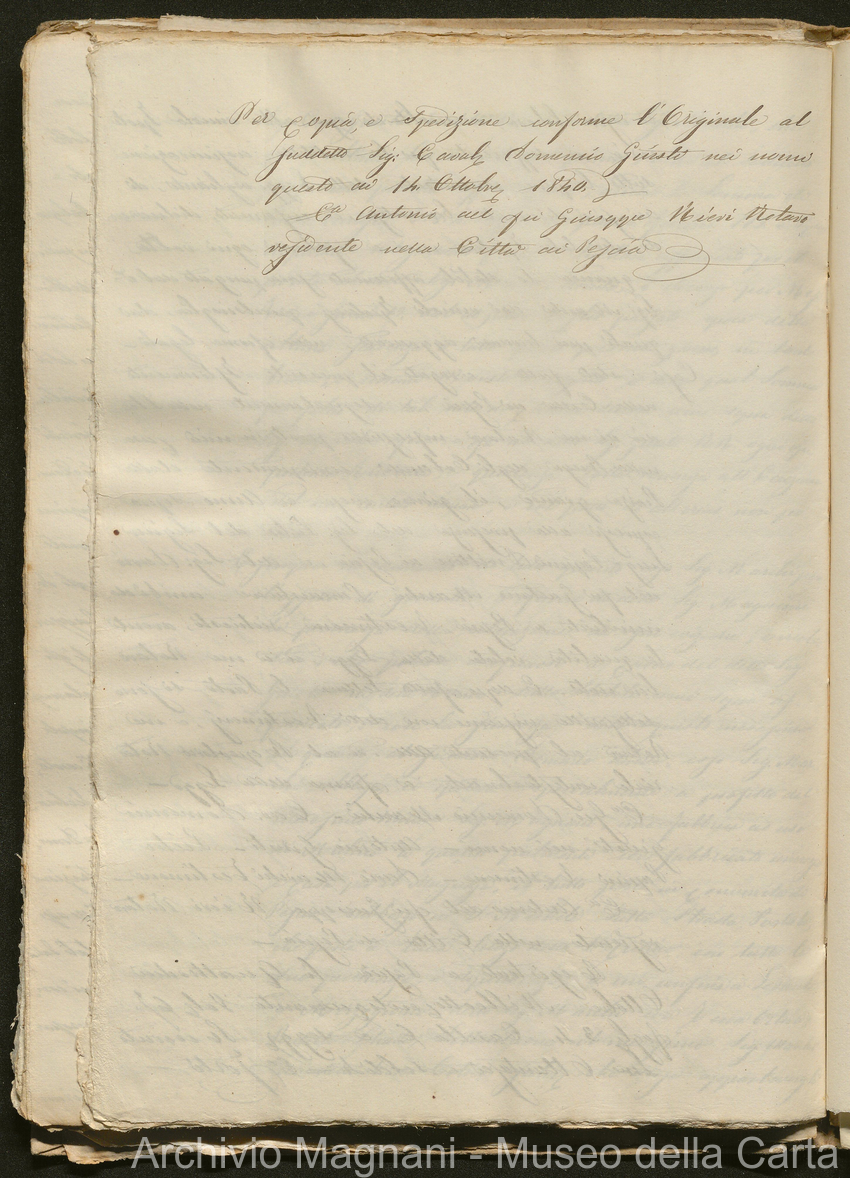 Per Copia, e Spedizione conforme l'Originale al
Suddetto Sig: Caval: Domenico Giusti nei nomi
questo dì 14 Ottobre 1840.
Co Antonio del fu Giuseppe Nieri Notaro
residente nella Città di Pescia
Archivio Magnani - Museo della Carta